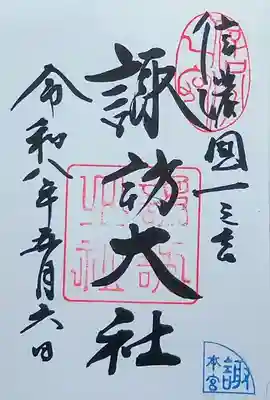 信濃國一之宮
諏訪大社
令和八年五月六日
諏
本宮